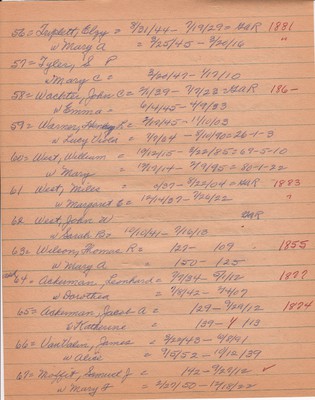 56= Tippett, Elzy = 8/21/44 - 7/19/29 = GAR 1881
w Mary A = 3/25/45 - 3/20/16 "
57= Tyler, S P
w Mary C = 3/20/47 - 1/17/10
58= Wachter, John C = 3/1/39 - 7/7/23 = GAR 186-
w Emma = 6/4/45 - 4/9/33
59= Warner, Henry L= 3/18/45 - 11/10/03
w Lucy Viola = 4/9/64 - 6/10/90=26-1-3
60= West, William = 10/12/15 - 3/22/85=69-5-10
w Mary = 10/19/14 - 7/9/95=80-8-22
61 West, Miles = /37 - 8/22/04 = GAR 1883
w Margaret E = 10/14/37 - 7/26/22 "
62 West, John W GAR
w Sarah B= 10/10/41 - 7/16/13
63= Wilson, Thomas R= 127 - 109 . 1855
w Mary A = 150 - 125
64= Ackerman, Leonhard= 7/7/34 - 5/1/12 1877
w Dorothea = 7/8/42 - 3/4/07
65= Ackerman, Jacob A = 129 - 7/24/12 1874
w Katherine = 139 - 113
66= VanValen, James = 3/24/43 - 4/8/41
w Alice = 7/5/52 - 10/12/39
67= Moffit, Samuel J = 142 - 3/29/12 ✓
w Mary A = 3/27/50 - 10/18/22